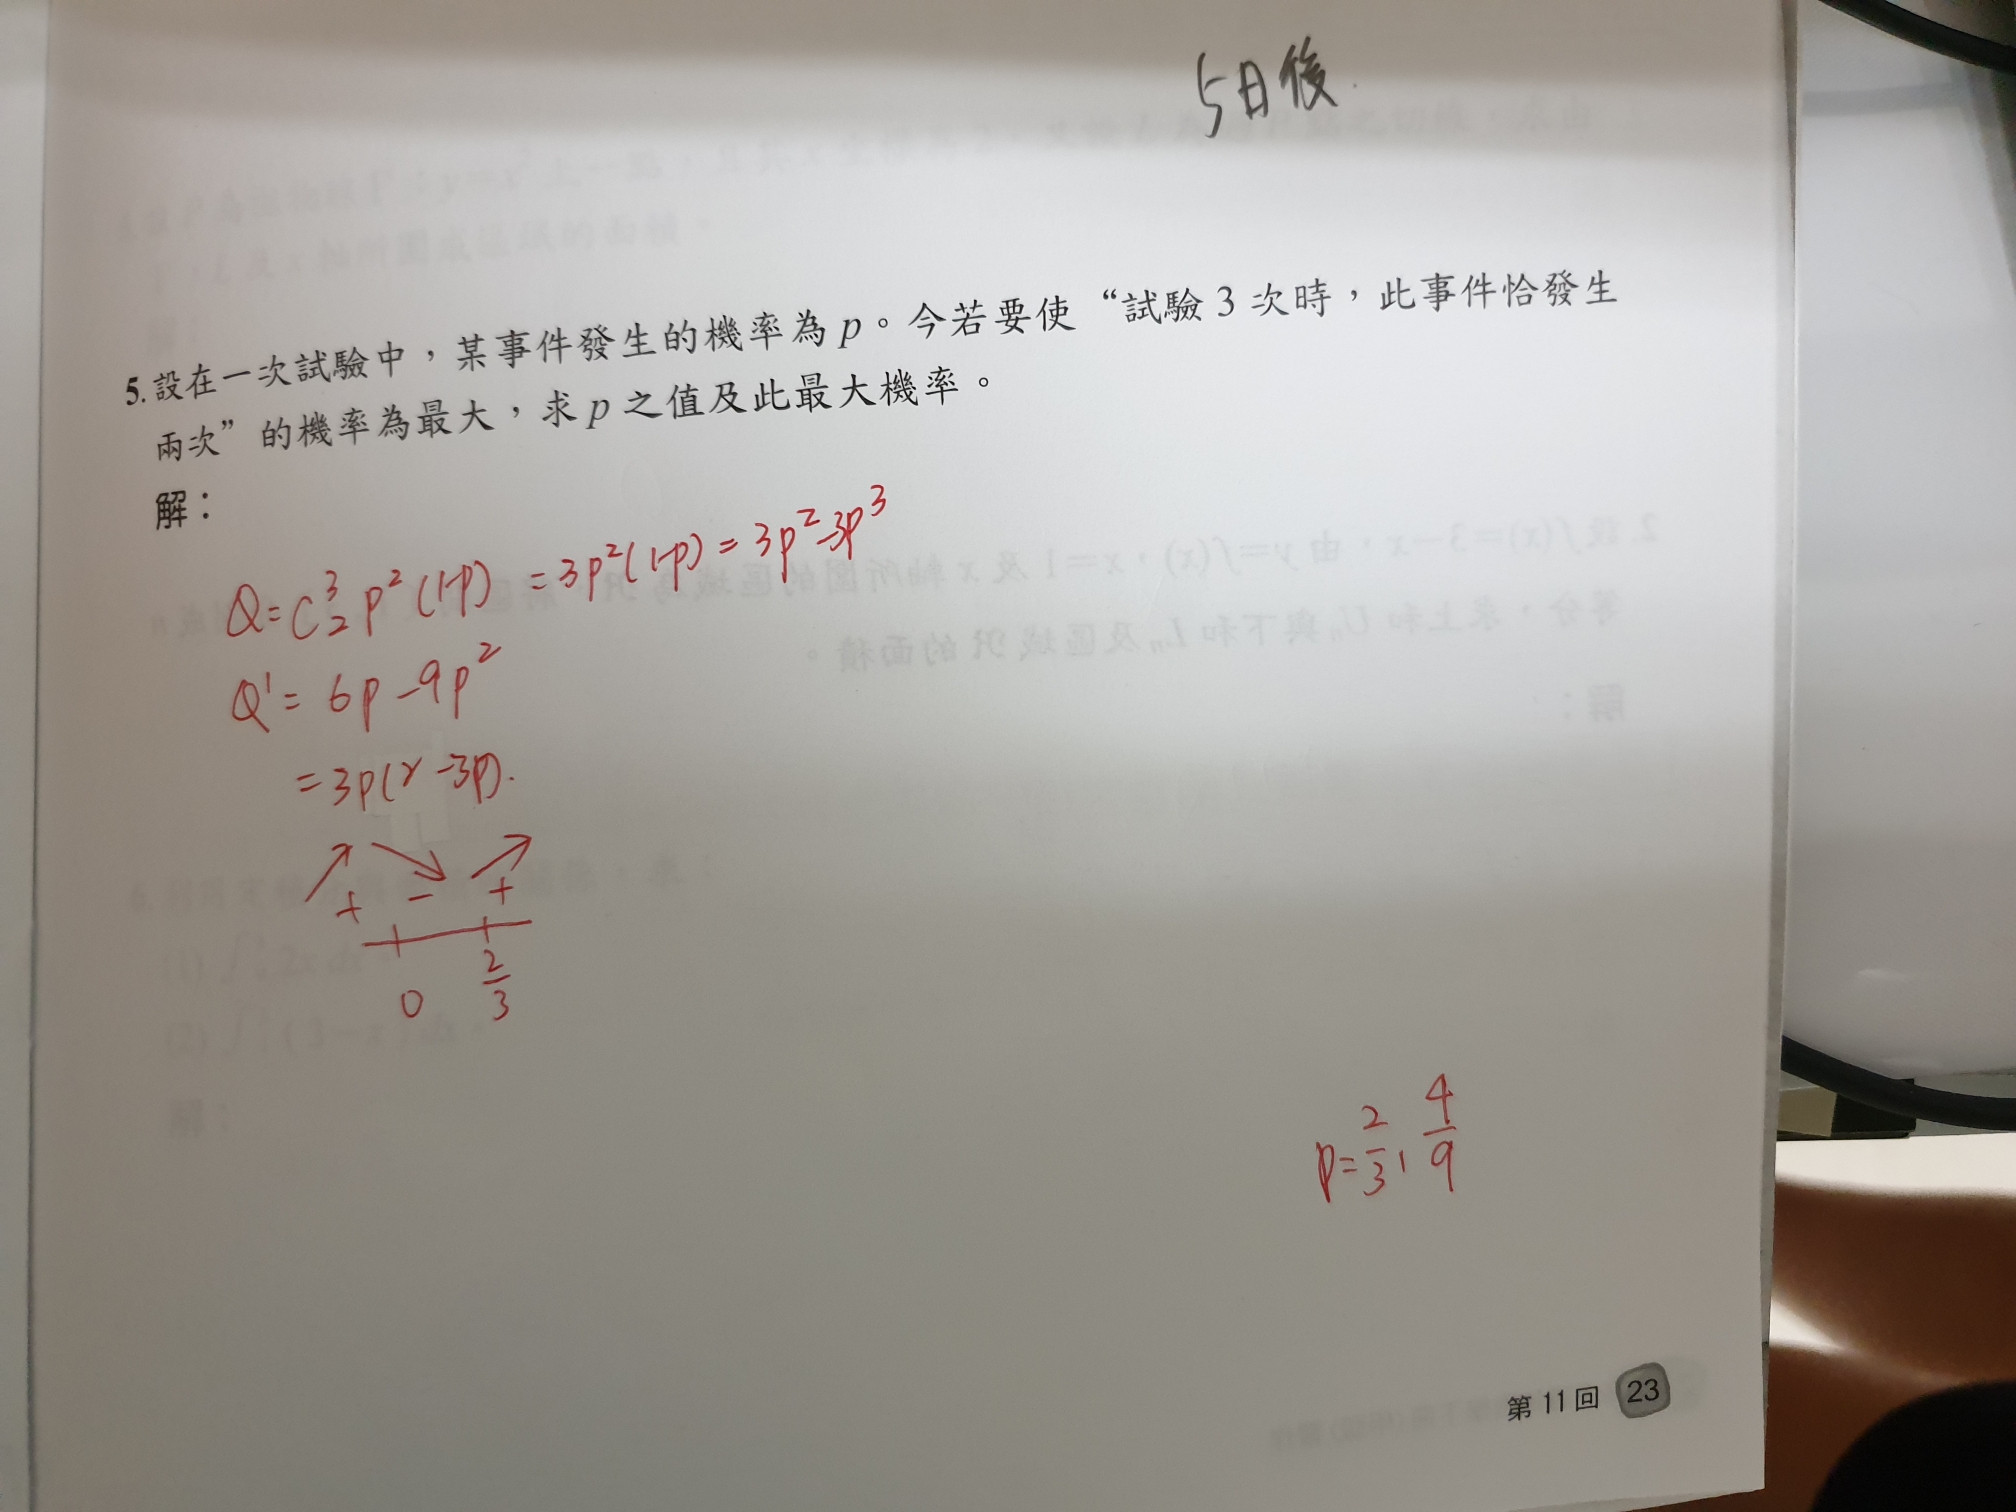 5日後
5. 設在一次試驗中，某事件發生的機率為 p。今若要使“試驗 3 次時，此事件恰發生
兩次”的機率為最大，求 p 之值及此最大機率。
解：
Q = C³₂ p² (1-p) = 3p² (1-p) = 3p² - 3p³
Q' = 6p - 9p²
= 3p(2 - 3p).
+ - +
0 2/3
p = 2/3, 4/9
第 11 回 23